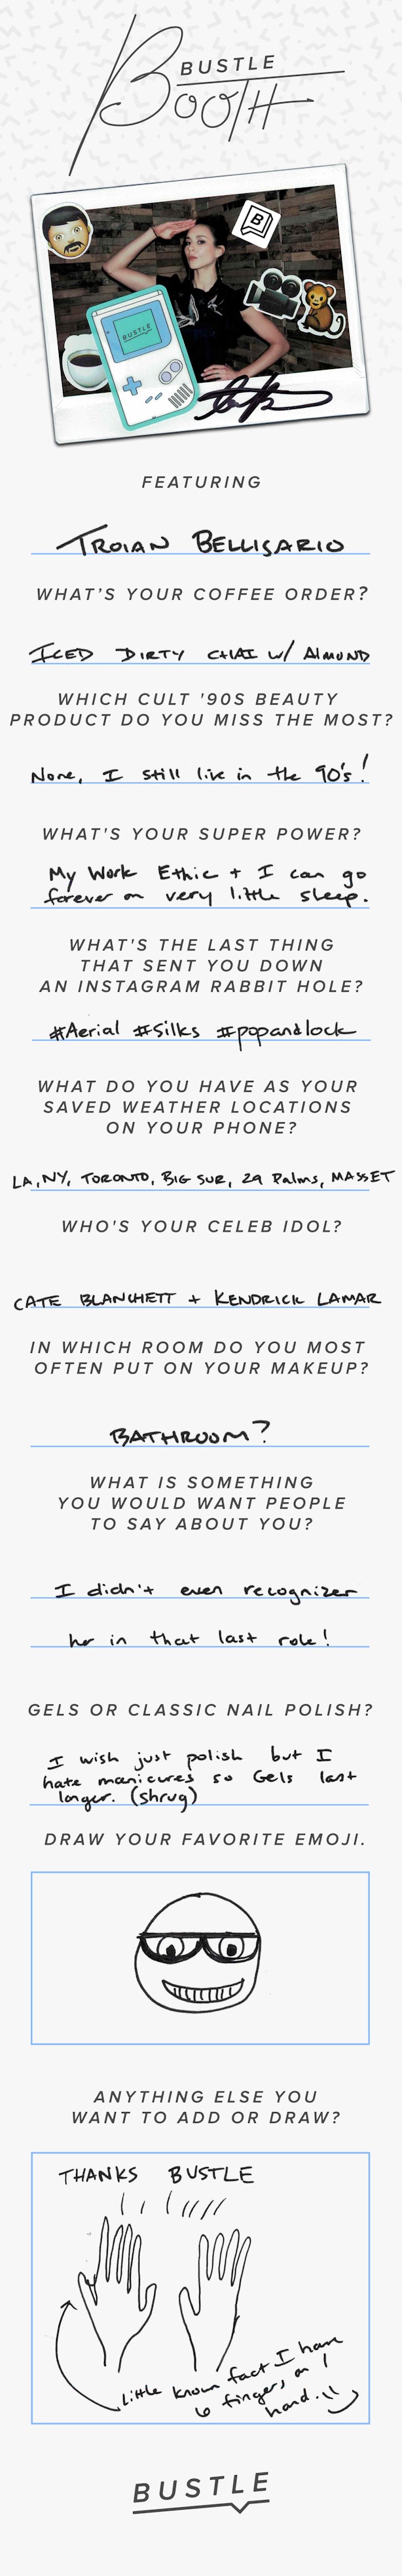 BUSTLE
BOOTH
B
BUSTLE
FEATURING
TROIAN BELLISARIO
WHAT'S YOUR COFFEE ORDER?
ICED DIRTY CHAI W/ AlmoND
WHICH CULT '90S BEAUTY
PRODUCT DO YOU MISS THE MOST?
None, I still live in the 90's!
WHAT'S YOUR SUPER POWER?
My Work Ethic + I can go
forever on very little sleep.
WHAT'S THE LAST THING
THAT SENT YOU DOWN
AN INSTAGRAM RABBIT HOLE?
#Aerial #Silks #popandlock
WHAT DO YOU HAVE AS YOUR
SAVED WEATHER LOCATIONS
ON YOUR PHONE?
LA, NY, TORONTO, BIG SUR, 29 Palms, MASSET
WHO'S YOUR CELEB IDOL?
CATE BLANCHETT + KENDRICK LAMAR
IN WHICH ROOM DO YOU MOST
OFTEN PUT ON YOUR MAKEUP?
BATHROOM?
WHAT IS SOMETHING
YOU WOULD WANT PEOPLE
TO SAY ABOUT YOU?
I didn't even recognizer
her in that last role!
GELS OR CLASSIC NAIL POLISH?
I wish just polish but I
hate manicures so Gels last
longer. (shrug)
DRAW YOUR FAVORITE EMOJI.
ANYTHING ELSE YOU
WANT TO ADD OR DRAW?
THANKS BUSTLE
Little known fact I have
6 fingers on 1
hand. !!
BUSTLE